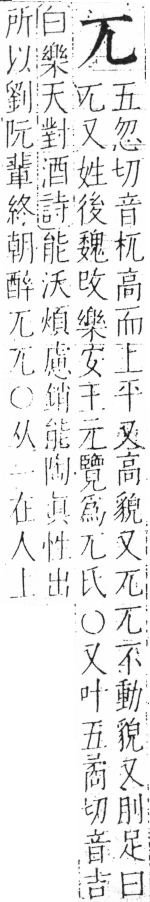 兀
五忽切音杌高而上平又高貌又兀兀不動貌又刖足曰
兀又姓後魏改樂安王元覽爲兀氏○又叶五矞切音吉
白樂天對酒詩能沃煩慮銷能陶真性出
所以劉阮輩終朝醉兀兀○从一在人上